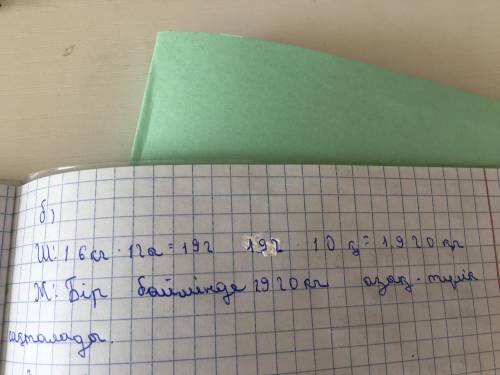 б)
Ш: 16кг · 12а = 192 192 · 10қ = 1920кг
Ж: Бір бөлімінде 1920кг азық-түлік
сақталады.